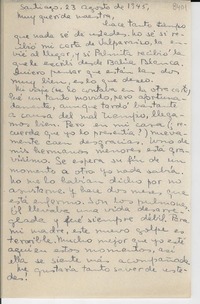 Santiago, 23 agosto de 1945,
Muy querida maestra,
hace tanto tiempo
que nada sé de ustedes. No sé si re-
cibió mi carta de Valparaíso, la en-
vié al llegar, y si Palmita recibió la
que le escribí desde Bahía Blanca.
Quiero pensar que están las dos
muy bien, es lo que deseo.
Mi viaje (se lo contaba en la otra c.)
fué un tanto movido, pero afortuna-
damente, aunque tardó bastante
a causa del mal tiempo, llega-
mos bien. Pero en mi casa, (re-
cuerda que yo lo presentía?) nueva-
mente caen desgracias, uno de
mis hermanos menores está gra-
vísimo. Se espera su fin de un
momento a otro. Yo nada sabía,
no me lo habían dicho por no
asustarme. Y hace dos meses que
está enfermo. Son los pulmones,
él llevaba una vida desarre-
glada y fué siempre débil. Para
mi madre, este nuevo golpe es
terrible. Mucho mejor que yo esté
aquí en estos momentos, así
ella se siente más acompañada.
Me gustaría tanto saber de uste-
des.